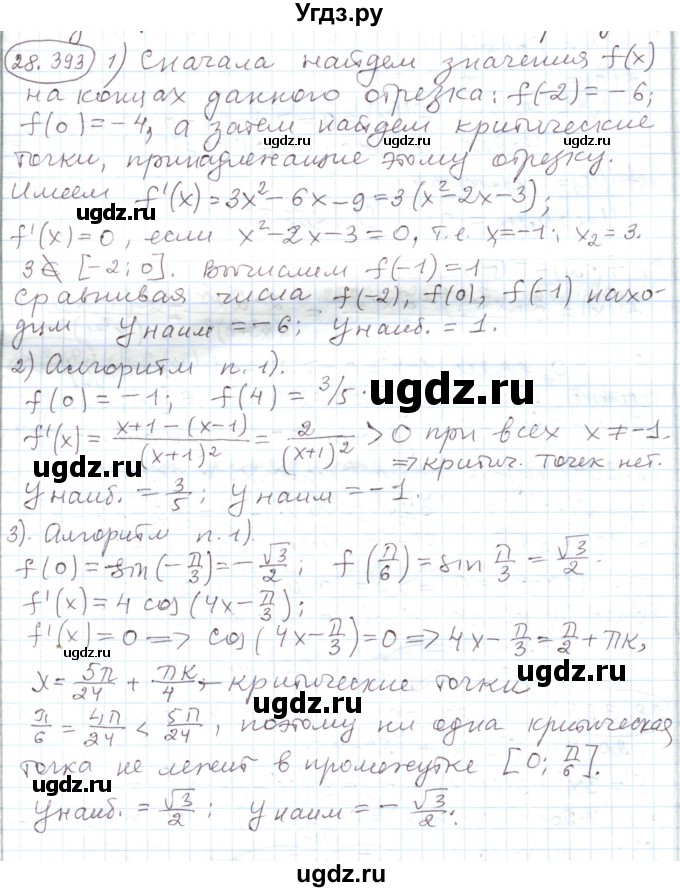 Угдз.ру
28.393 1) Сначала найдем значения f(x)
на концах данного отрезка: f(-2) = -6;
f(0) = -4, а затем найдем критические
точки, принадлежащие этому отрезку.
Имеем f'(x) = 3x² - 6x - 9 = 3(x² - 2x - 3);
f'(x) = 0, если x² - 2x - 3 = 0, т.е. x₁ = -1; x₂ = 3.
3 ∉ [-2; 0]. Вычислим f(-1) = 1
Сравнивая числа f(-2), f(0), f(-1) нахо-
дим y наим = -6; y наиб. = 1.
2) Алгоритм п. 1).
f(0) = -1; f(4) = 3/5.
f'(x) = (x+1-(x-1))/(x+1)² = 2/(x+1)² > 0 при всех x ≠ -1.
=> критич. точек нет.
y наиб. = 3/5; y наим = -1.
3). Алгоритм п. 1).
f(0) = sin(-π/3) = -√3/2; f(π/6) = sin π/3 = √3/2.
f'(x) = 4 cos(4x - π/3);
f'(x) = 0 => cos(4x - π/3) = 0 => 4x - π/3 = π/2 + πk,
x = 5π/24 + πk/4, - критические точки
π/6 = 4π/24 < 5π/24, поэтому ни одна критическая
точка не лежит в промежутке [0; π/6].
y наиб. = √3/2; y наим = -√3/2.
ugdz.ru
ugdz.ru
ugdz.ru
ugdz.ru
ugdz.ru
ugdz.ru
ugdz.ru
ugdz.ru
ugdz.ru
ugdz.ru
ugdz.ru